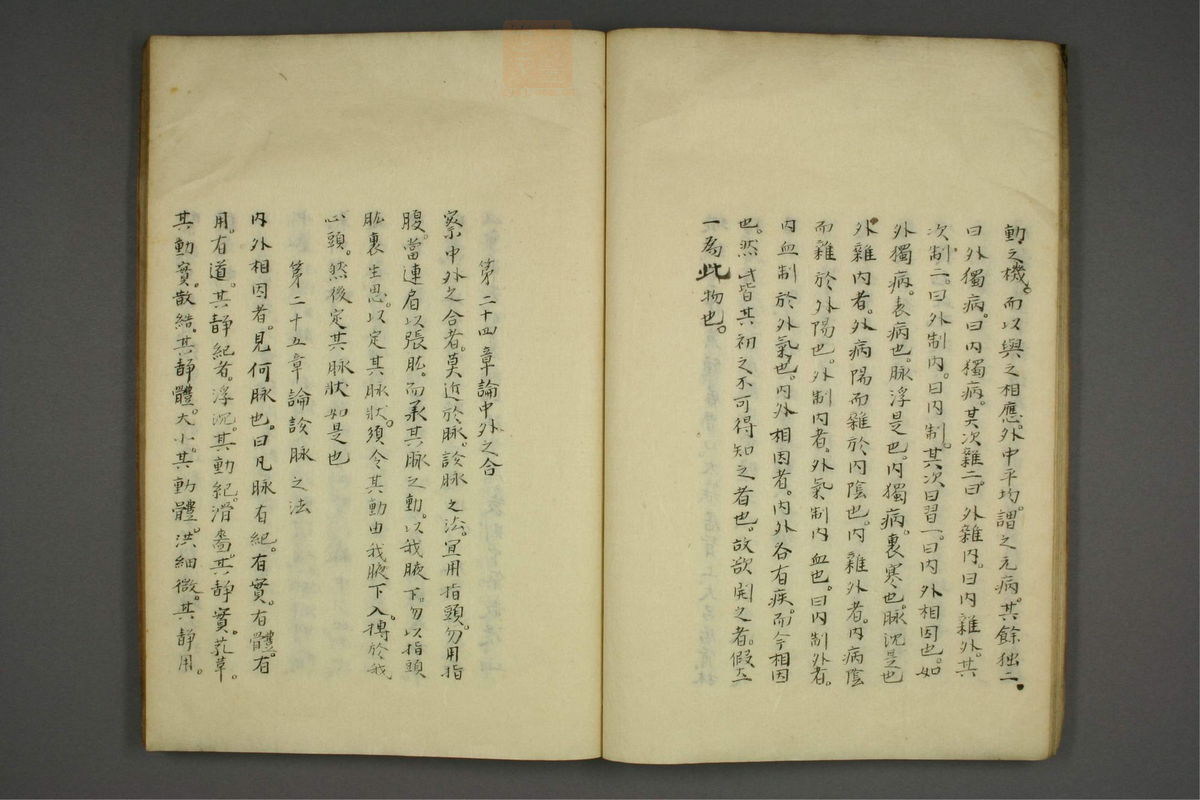 動之機。而以與之相應。外中平均。謂之无病。其餘拙二。
曰外獨病。曰内獨病。其次雜二。曰外雜内。曰内雜外。其
次制二。曰外制内。曰内制。其次曰習一。曰内外相因也。如
外獨病。表病也。脉浮是也。内獨病。裏寒也。脉沈是也
外雜内者。外病陽而雜於内陰也。内雜外者。内病陰
而雜於外陽也。外制内者。外氣制内血也。曰内制外者。
内血制於外氣也。内外相因者。内外各有疾。而今相因
也。然此皆其初之不可得知之者也。故欲闭之者。假立
一為此物也。
第二十四章論中外之合
察中外之合者。莫近於脉。診脉之法。宜用指頭。勿用指
腹。當連肩以張肱。而承其脉之動。以我腋下。勿以指頭
肱裏生思。以定其脉狀。須令其動由我腋下入。摶於我
心頭。然後定其脉狀如是也
第二十五章論診脉之法
内外相因者。見何脉也。曰凡脉有紀。有實。有體。有
用。有道。其靜紀者。浮沈。其動紀。滑嗇。其靜實。芤革。
其動實。散結。其靜體。大小。其動體。洪細微。其靜用。